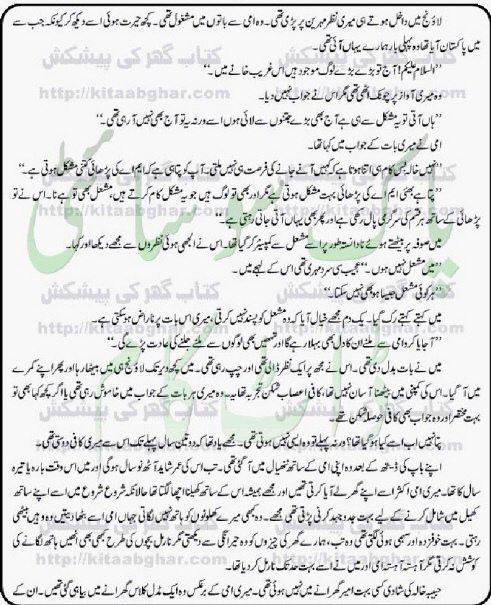 لاؤنج میں داخل ہوتے ہی میری نظر مہرین پر پڑی تھی۔ وہ امی سے باتوں میں مشغول تھی۔ کچھ حیرت ہوئی اسے دیکھ کر کیونکہ جب سے
میں پاکستان آیا تھا وہ پہلی بار ہمارے یہاں آئی تھی۔
"السلام علیکم! آج تو بڑے بڑے لوگ موجود ہیں اس غریب خانے میں۔"
وہ میری آواز پر چونک اٹھی تھی مگر اس نے جواب نہیں دیا۔
"ہاں آتی تو یہ مشکل سے ہی ہے آج بھی بڑے جتنوں سے لائی ہوں اسے ورنہ یہ تو آج بھی نہیں آ رہی تھی۔"
امی نے میری بات کے جواب میں کہا تھا۔
"نہیں خالہ بس کام ہی اتنا ہوتا ہے کہ کہیں آنے جانے کی فرصت ہی نہیں ملتی۔ آپ کو پتا ہی ہے کہ ایم اے کی پڑھائی کتنی مشکل ہوتی ہے۔"
"پتا ہے بھئی ایم اے کی پڑھائی بہت مشکل ہوتی ہے مگر اور بھی تو لوگ ہیں جو یہ مشکل کام کرتے ہیں، مشعل بھی تو ہے نا۔ اس نے تو
پڑھائی کے ساتھ ہر قسم کی سرگرمی پال رکھی ہے اور پھر بھی یہاں آتی جاتی رہتی ہے۔"
میں صوفہ پر بیٹھتے ہوئے نادانستہ طور پر اسے مشعل سے کمپیئر کر گیا تھا۔ اس نے الجھی ہوئی نظروں سے مجھے دیکھا اور کہا۔
"میں مشعل نہیں ہوں۔" عجیب سی سرد مہری تھی اس کے لہجے میں۔
"ہر کوئی مشعل جیسا ہو بھی نہیں سکتا۔"
میں کہتے کہتے رک گیا۔ یک دم مجھے خیال آیا کہ وہ مشعل کو پسند نہیں کرتی، میری اس بات پر ناراض ہو سکتی ہے۔
"آ جایا کرو امی سے ملنے ان کا دل بھی بہلا رہے گا اور تمہیں بھی لوگوں سے ملنے جلنے کی عادت پڑے گی۔"
میں نے بات بدل دی تھی۔ اس نے مجھ پر ایک نظر ڈالی تھی اور چپ رہی تھی۔ میں کچھ دیر تک لاؤنج ہی میں بیٹھا رہا اور پھر اپنے کمرے
میں آ گیا۔ اس کی کمپنی میں بیٹھنا آسان نہیں تھا، کافی اعصاب شکن تجربہ تھا یہ۔ وہ میری ہر بات کے جواب میں خاموش رہی تھی یا اگر کچھ کہا بھی تو
بہت مختصر اور وہ جواب بھی کافی حوصلہ شکن تھے
پتا نہیں اب اسے کیا ہو گیا تھا؟ ورنہ پہلے تو وہ ایسی نہیں ہوتی تھی۔ مجھے یاد تھا کہ دو تین سال پہلے تک اس سے میری کافی دوستی تھی۔
اپنے باپ کی ڈیتھ کے بعد وہ اپنی امی کے ساتھ ننھیال میں آ گئی تھی۔ تب اس کی عمر شاید آٹھ نو سال ہو گی اور میں اس وقت بارہ یا تیرہ
سال کا تھا۔ میری امی اکثر اسے اپنے گھر لے آیا کرتی تھیں اور مجھے ہمیشہ اس کے ساتھ کھیلنا اچھا لگتا تھا حالانکہ شروع شروع میں اسے اپنے ساتھ
کھیل میں شامل کرنے کے لیے بہت جدوجہد کرنی پڑتی تھی مجھے۔ وہ کبھی میرے کھلونوں کو ہاتھ نہیں لگاتی جہاں امی اسے بٹھا دیتیں وہ وہیں بیٹھی
رہتی۔ بہت خوفزدہ اور سہمی ہوئی لگتی تھی وہ تب، ہمارے گھر کی چیزوں کو وہ حیرانگی سے دیکھتی مگر نارمل بچوں کی طرح کبھی بھی انھیں ہاتھ لگانے کی
کوشش نہ کرتی مگر آہستہ آہستہ امی اور میں نے اسے بہت حد تک نارمل کر دیا تھا۔
حبیبہ خالہ کی شادی کسی بہت امیر گھرانے میں نہیں ہوئی تھی۔ میری امی کے برعکس وہ ایک مڈل کلاس گھرانے میں بیاہی گئی تھیں۔ ان کے
کتاب گھر کی پیشکش
http://kitaabghar.com
پاک سوسائٹی
ڈاٹ کام